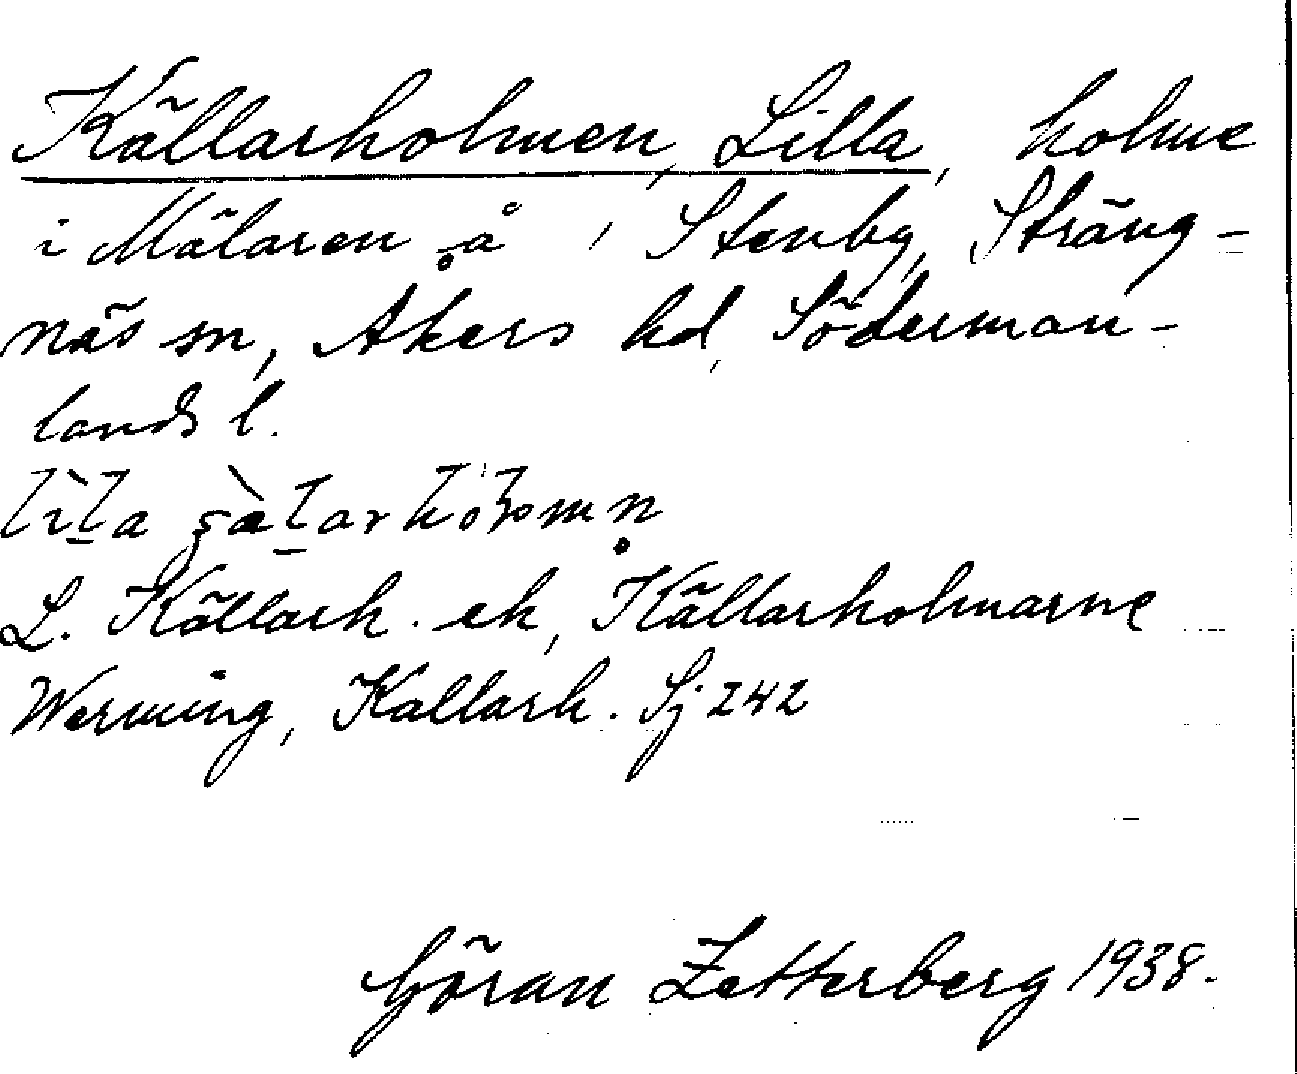 Källarholmen, Lilla, holme
i Mälaren å Stenby, Sträng-
näs sn, Åkers hd, Söderman-
lands l.
lìla çæ̀larhòlmn̥
L. Källarh. ek, Källarholmarne
Werming, Kallarh. Sj 242
Göran Zetterberg 1938.